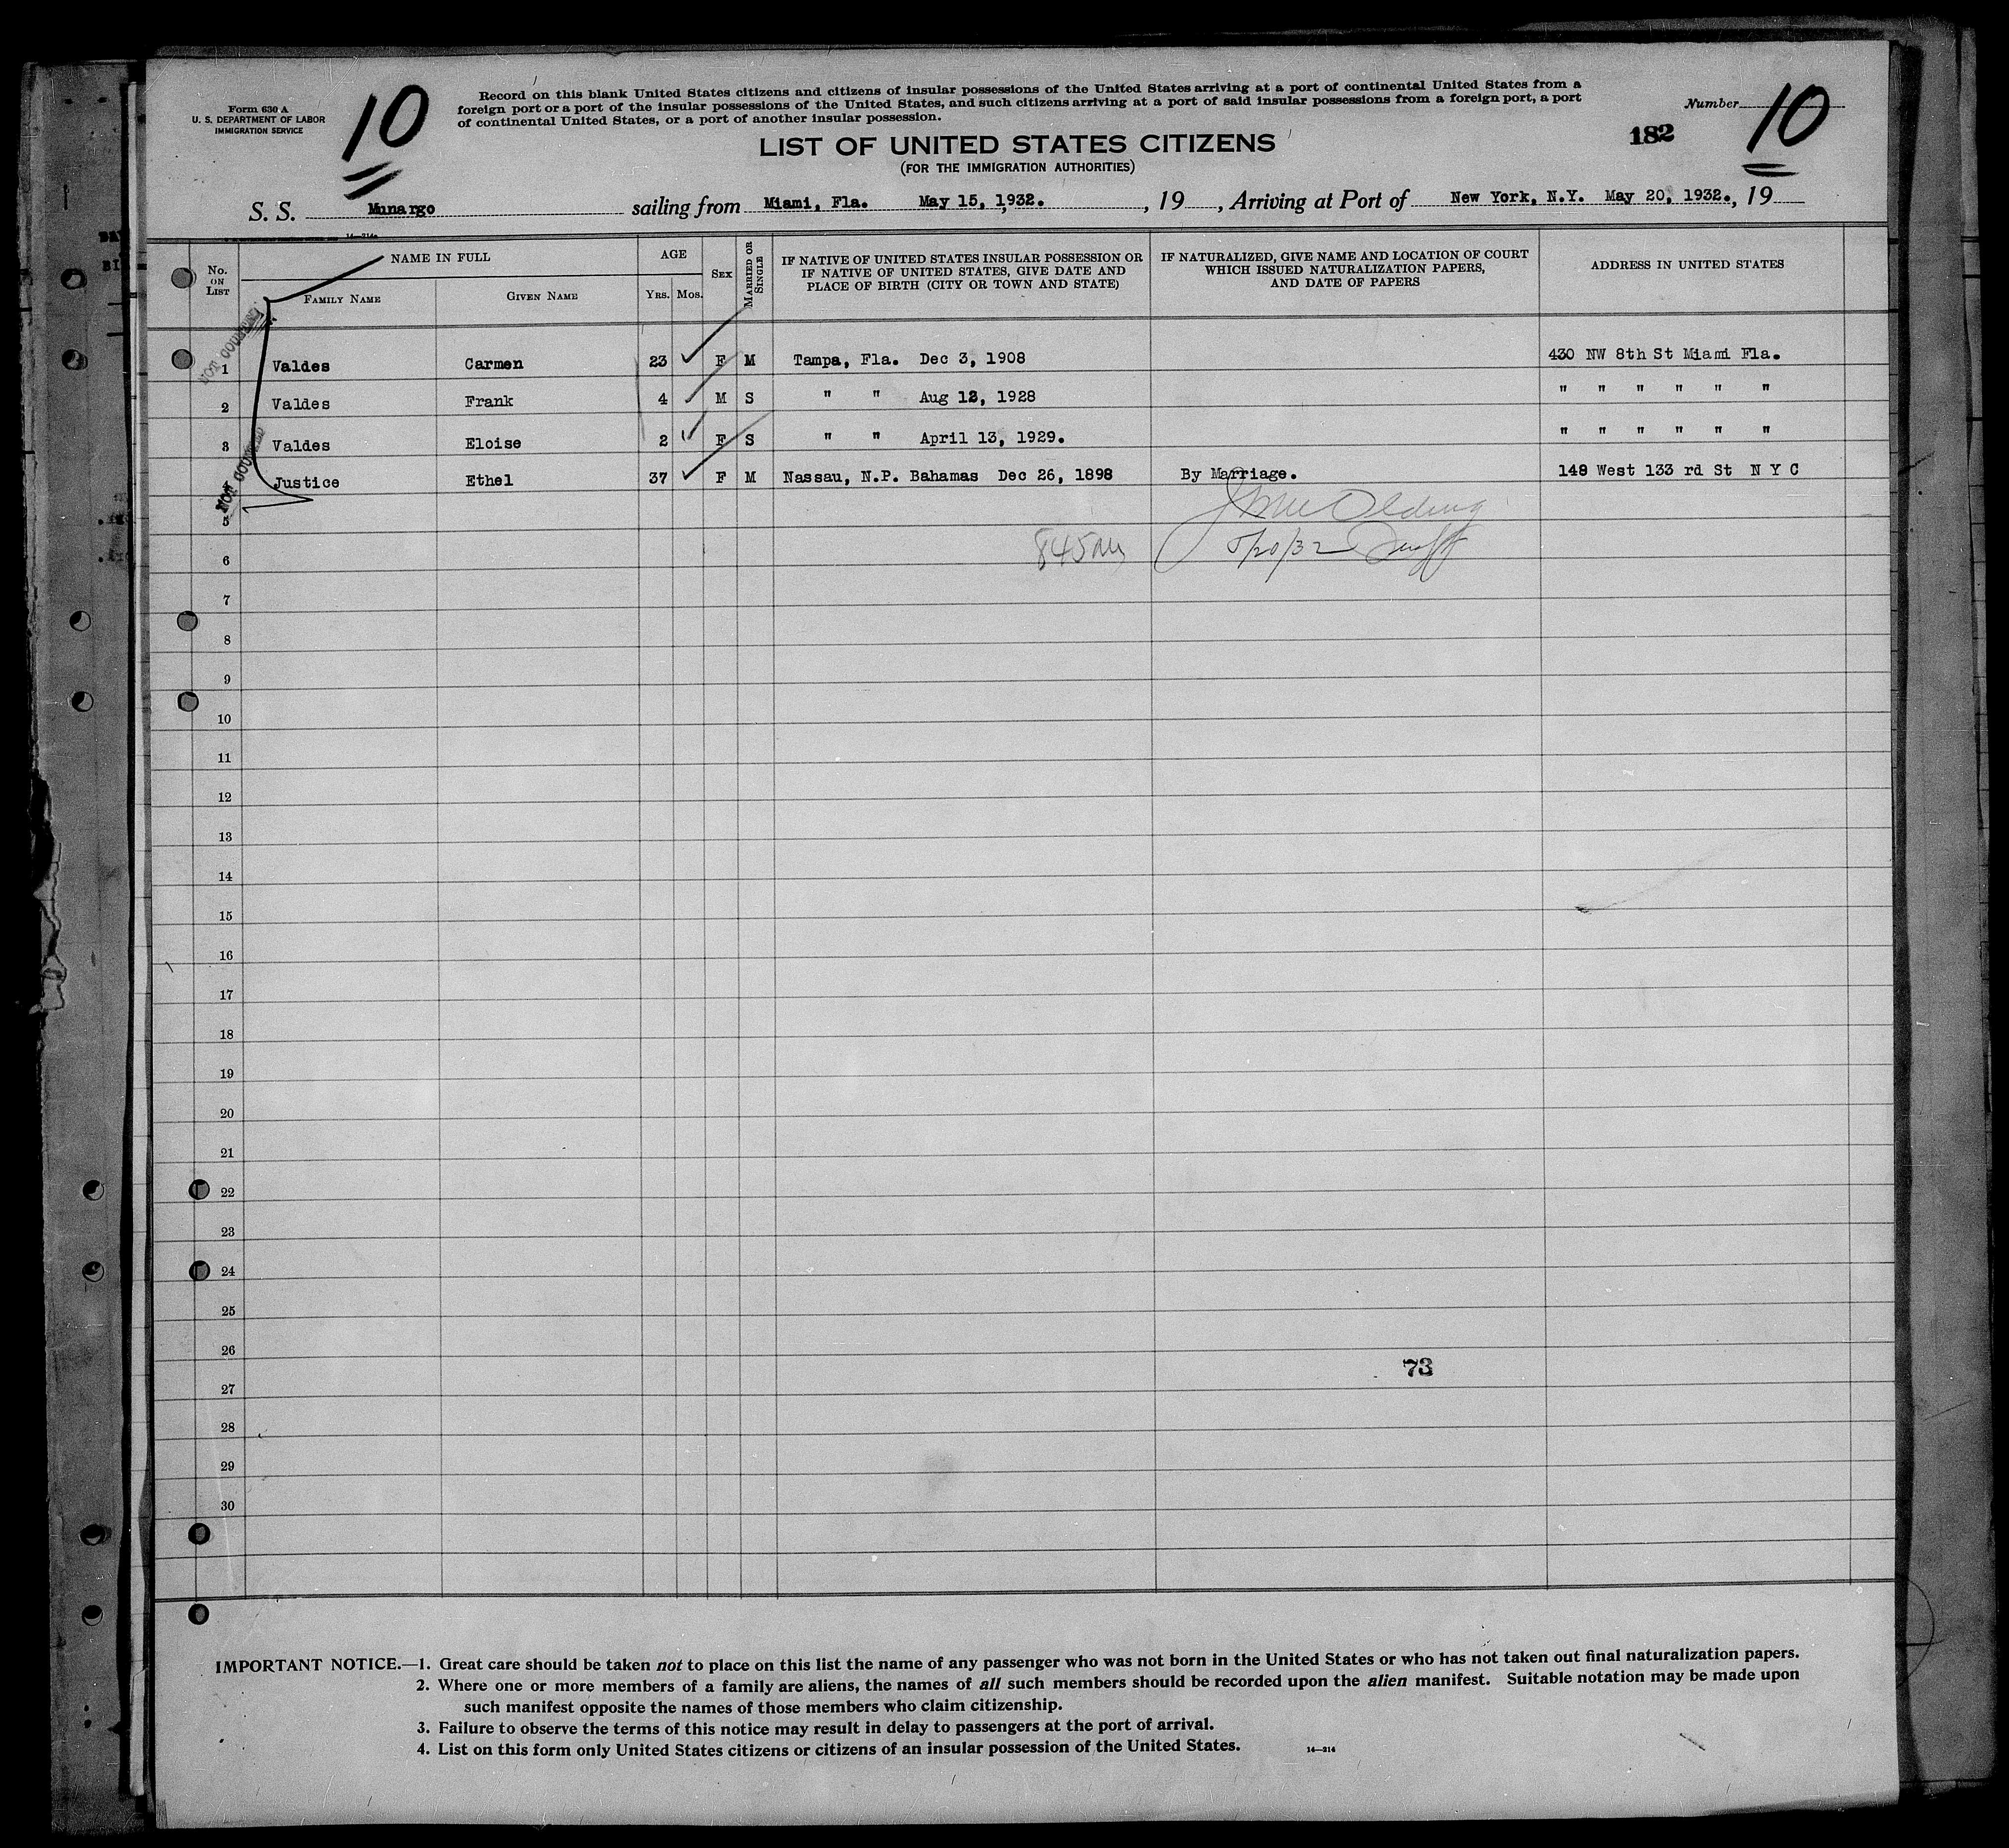 Form 630 A
U. S. DEPARTMENT OF LABOR
IMMIGRATION SERVICE
10
Record on this blank United States citizens and citizens of insular possessions of the United States arriving at a port of continental United States from a
foreign port or a port of the insular possessions of the United States, and such citizens arriving at a port of said insular possessions from a foreign port, a port
of continental United States, or a port of another insular possession.
Number 10
182
LIST OF UNITED STATES CITIZENS
(FOR THE IMMIGRATION AUTHORITIES)
S. S. Munargo sailing from Miami, Fla. May 15, 1932. , 19 , Arriving at Port of New York, N.Y. May 20, 1932., 19
14—214
No. ON LIST NAME IN FULL FAMILY NAME GIVEN NAME AGE YRS. MOS. SEX MARRIED OR SINGLE IF NATIVE OF UNITED STATES INSULAR POSSESSION OR IF NATIVE OF UNITED STATES, GIVE DATE AND PLACE OF BIRTH (CITY OR TOWN AND STATE) IF NATURALIZED, GIVE NAME AND LOCATION OF COURT WHICH ISSUED NATURALIZATION PAPERS, AND DATE OF PAPERS ADDRESS IN UNITED STATES
NOT COUNTED
1 Valdes Carmen 23 F M Tampa, Fla. Dec 3, 1908 430 NW 8th St Miami Fla.
2 Valdes Frank 4 M S " " Aug 12, 1928 " " " " " "
3 Valdes Eloise 2 F S " " April 13, 1929. " " " " " "
NOT COUNTED
4 Justice Ethel 37 F M Nassau, N.P. Bahamas Dec 26, 1898 By Marriage. 148 West 133 rd St N Y C
5
6 5/20/32
7
8
9
10
11
12
13
14
15
16
17
18
19
20
21
22
23
24
25
26
73
27
28
29
30
IMPORTANT NOTICE.—1. Great care should be taken not to place on this list the name of any passenger who was not born in the United States or who has not taken out final naturalization papers.
2. Where one or more members of a family are aliens, the names of all such members should be recorded upon the alien manifest. Suitable notation may be made upon
such manifest opposite the names of those members who claim citizenship.
3. Failure to observe the terms of this notice may result in delay to passengers at the port of arrival.
4. List on this form only United States citizens or citizens of an insular possession of the United States. 14—214